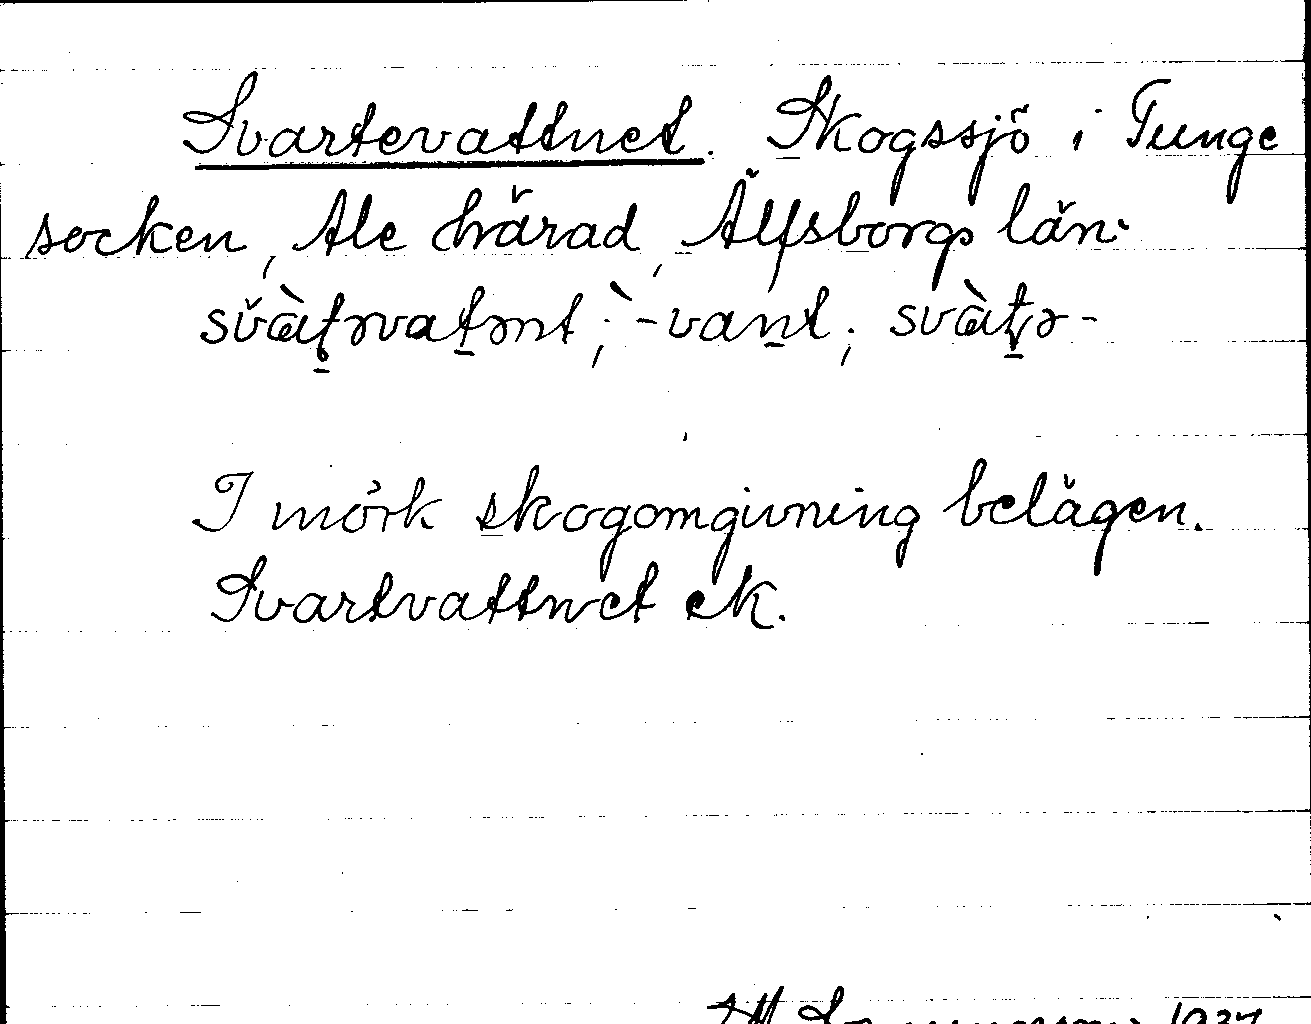 Svartevattnet. Skogssjö i Tunge
socken, Ale härad, Älfsborgs län.
svàt̠əvat̠ənt; -van̠t; svàt̠ə-
I mörk skogomgivning belägen.
Svartvattnet ek.
1937